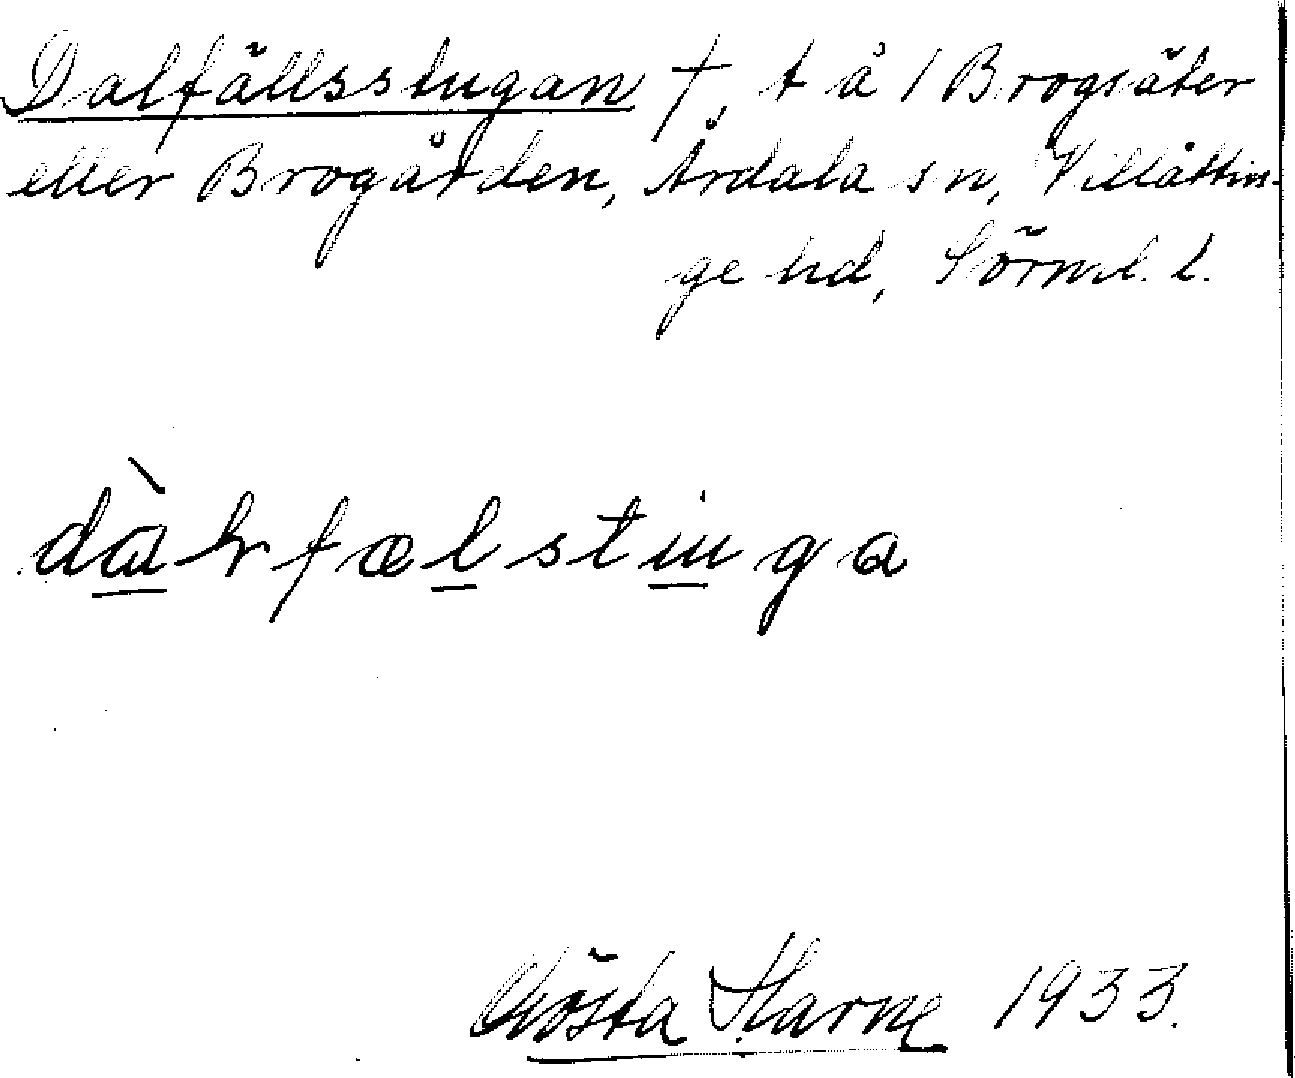 Dalfällsstugan †, t å 1 Brogsäter
eller Brogården, Årdala sn, Villåttin-
ge hd, Sörml. l.
dàlrfælstuga
Gösta Starne 1933.